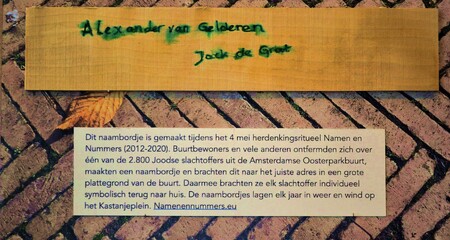 Alexander van Gelderen
Jack de Groot
Dit naambordje is gemaakt tijdens het 4 mei herdenkingsritueel Namen en
Nummers (2012-2020). Buurtbewoners en vele anderen ontfermden zich over
één van de 2.800 Joodse slachtoffers uit de Amsterdamse Oosterparkbuurt,
maakten een naambordje en brachten dit naar het juiste adres in een grote
plattegrond van de buurt. Daarmee brachten ze elk slachtoffer individueel
symbolisch terug naar huis. De naambordjes lagen elk jaar in weer en wind op
het Kastanjeplein. Namenennummers.eu